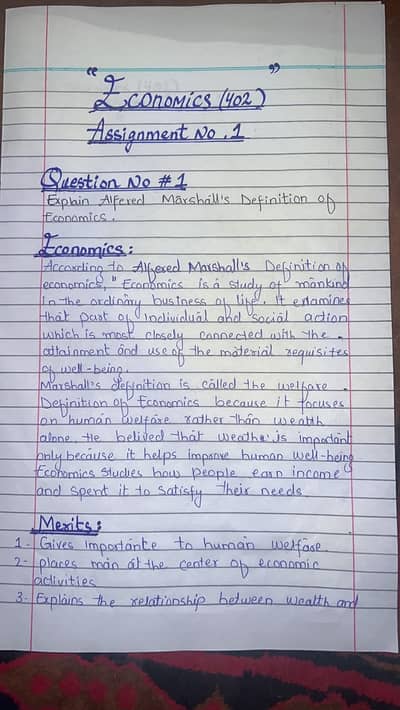 " Economics (402) "
Assignment No . 1
Question No # 1
Explain Alfered Marshall's Definition of
Economics .
Economics :
According to Alfered Marshall's Definition of
economics, " Economics is a study of mankind
in the ordinary business of life. It examines
that part of individual and social action
which is most closely connected with the .
attainment and use of the material requisites
of well-being.
Marshall's definition is called the welfare .
Definition of Economics because it focuses
on human welfare rather than wealth
alone. He belived that wealthe is important
only because it helps improve human well-being
Economics Studies how people earn income
and spent it to satisfy their needs.
Merits :
1- Gives importante to human welfare.
2- places man at the center of economic
activities
3- Explains the relationship between wealth and